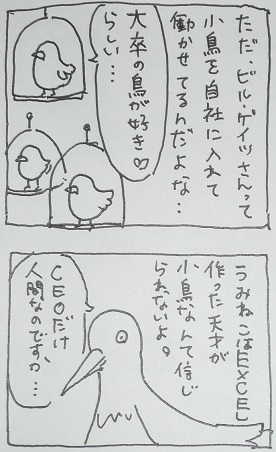 ただ、ビル・ゲイツさんって
小鳥を自社に入れて
働かせてるんだよな…
大卒の鳥が好き♡
らしい…
うみねこはEXCEL
作った天才が
小鳥なんて信じ
られないよ。
CEOだけ
人間なのですか…